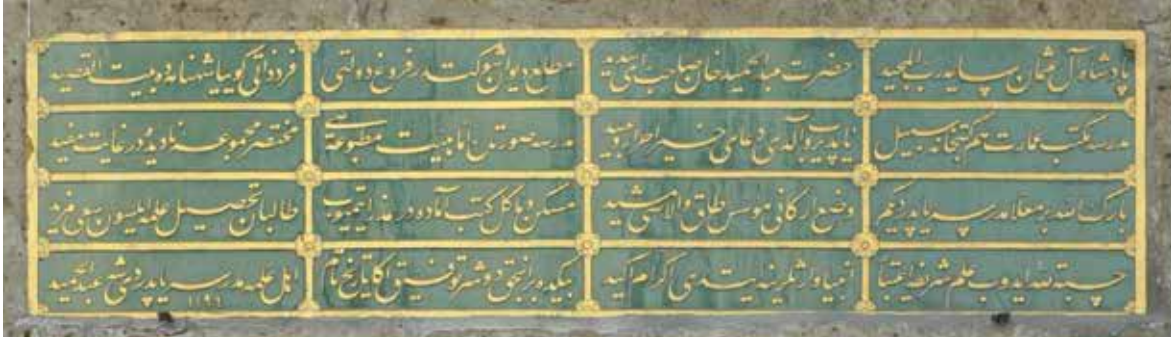 پادشاه آل عثمان سایه رب المجید حضرت عبدالحمید خان صاحب رأی سدید مطلع دیوان شوکتدر فروغ دولتی فرد ذاتی کویا شهنامه ده بیت القصید
مدرسه مکتب عمارت هم کتبخانه سبیل یاپدیروب آلدی دعای خیر احرار و عبید مدرسه صورتده اما بیت مطبوعه سی مختصر مجموعه در غایت مفید
بارک الله بر معلا مدرسه یاپدی کیم وضع ارکانی مؤسس طاق والاسی مشید مسکن و مأکل کتب آماده در ایتمیوب طالبان تحصیل علم ایلسون سعی مزید
حسبة لله ایدوب علم شریفه اعتنا انبیا وارثلرینه ایتدی اکرام اکید بیکده بر انجق دوشر توفیقی کا تاریخ تام اهل علمه مدرسه یاپدردی شه عبدالحمید
١١٩١